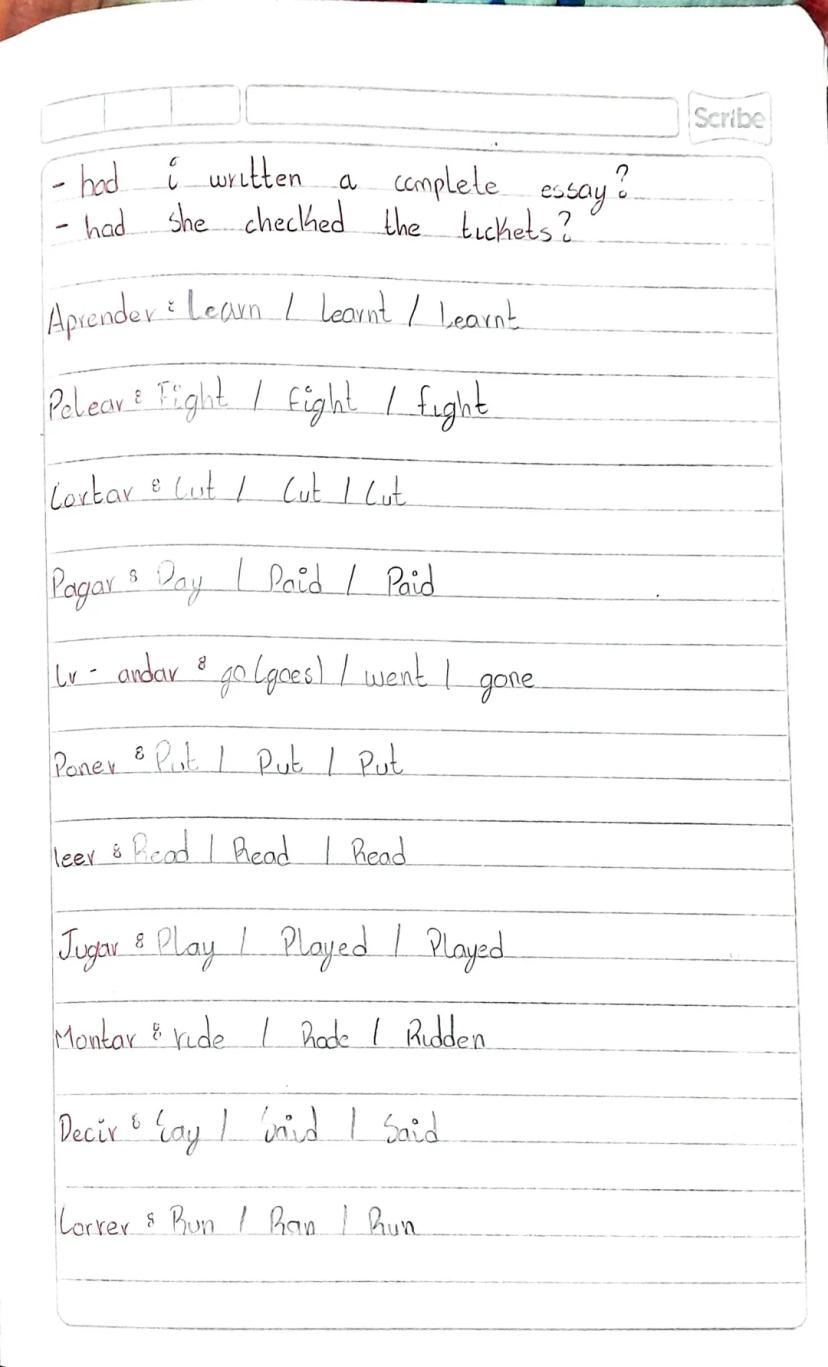 Scribe
- had i written a complete essay?
- had she checked the tickets?
Aprender: Learn / Learnt / Learnt
Pelear: Fight / Fight / fight
Cortar: Cut / Cut / Cut
Pagar: Pay / Paid / Paid
Ir - andar: go (goes) / went / gone
Poner: Put / Put / Put
leer: Read / Read / Read
Jugar: Play / Played / Played
Montar: ride / Rode / Ridden
Decir: Say / Said / Said
Correr: Run / Ran / Run